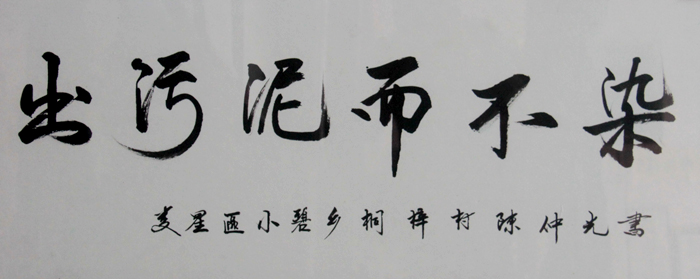 出污泥而不染
娄星区小碧乡桐梓村陈仲光書